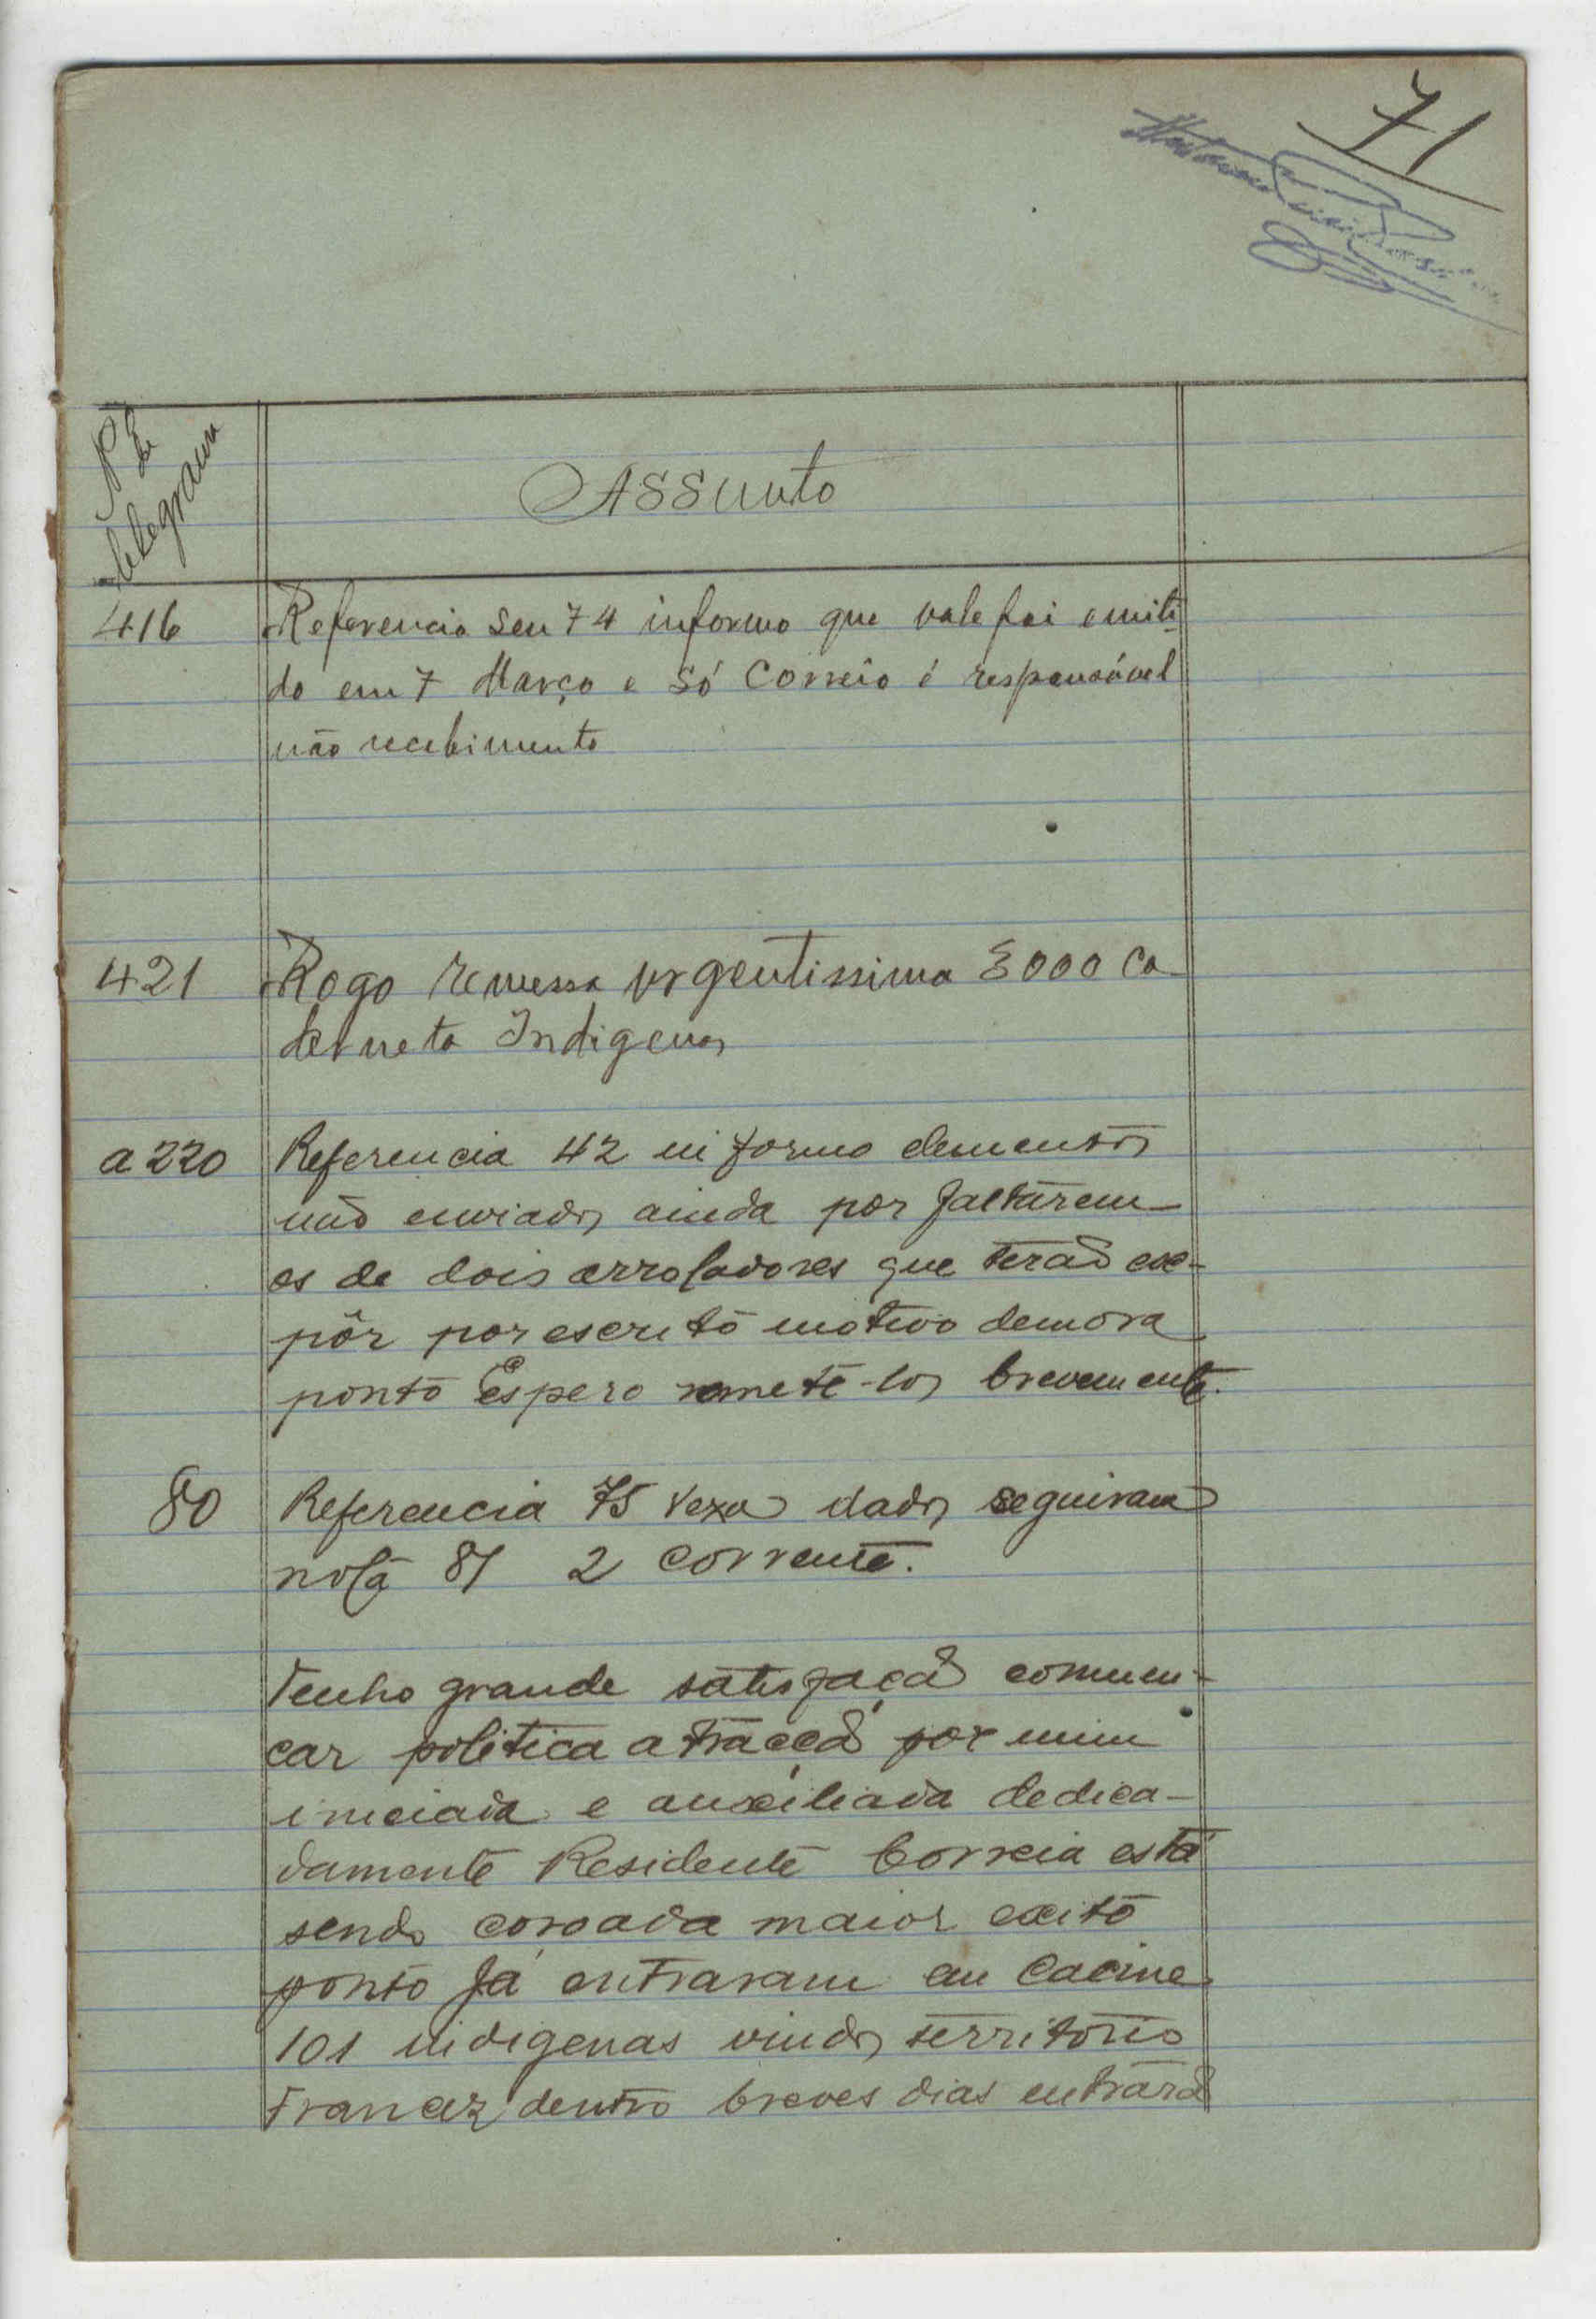 71
Nº de telegrama
Assunto
416 Referencia seu 74 informo que vale foi emiti-
do em 7 Março e só Correio é responsável
não recebimento
421 Rogo remessa urgentissima 3000 ca
derneta Indigenas
a 220 Referencia 42 informo elementos
não enviados ainda por faltarem
os de dois arroladores que terão ex-
pôr por escrito motivo demora
ponto Espero remetê-los brevemente.
80 Referencia 75 Vexa dados seguiram
nota 81 2 corrente.
Tenho grande satisfação comuni-
car politica atracção por mim
iniciada e auxiliada dedica-
damente Residente Correia está
sendo coroada maior exito
ponto Já entraram em Cacine
101 indigenas vindos territorio
Francez dentro breves dias entrarã